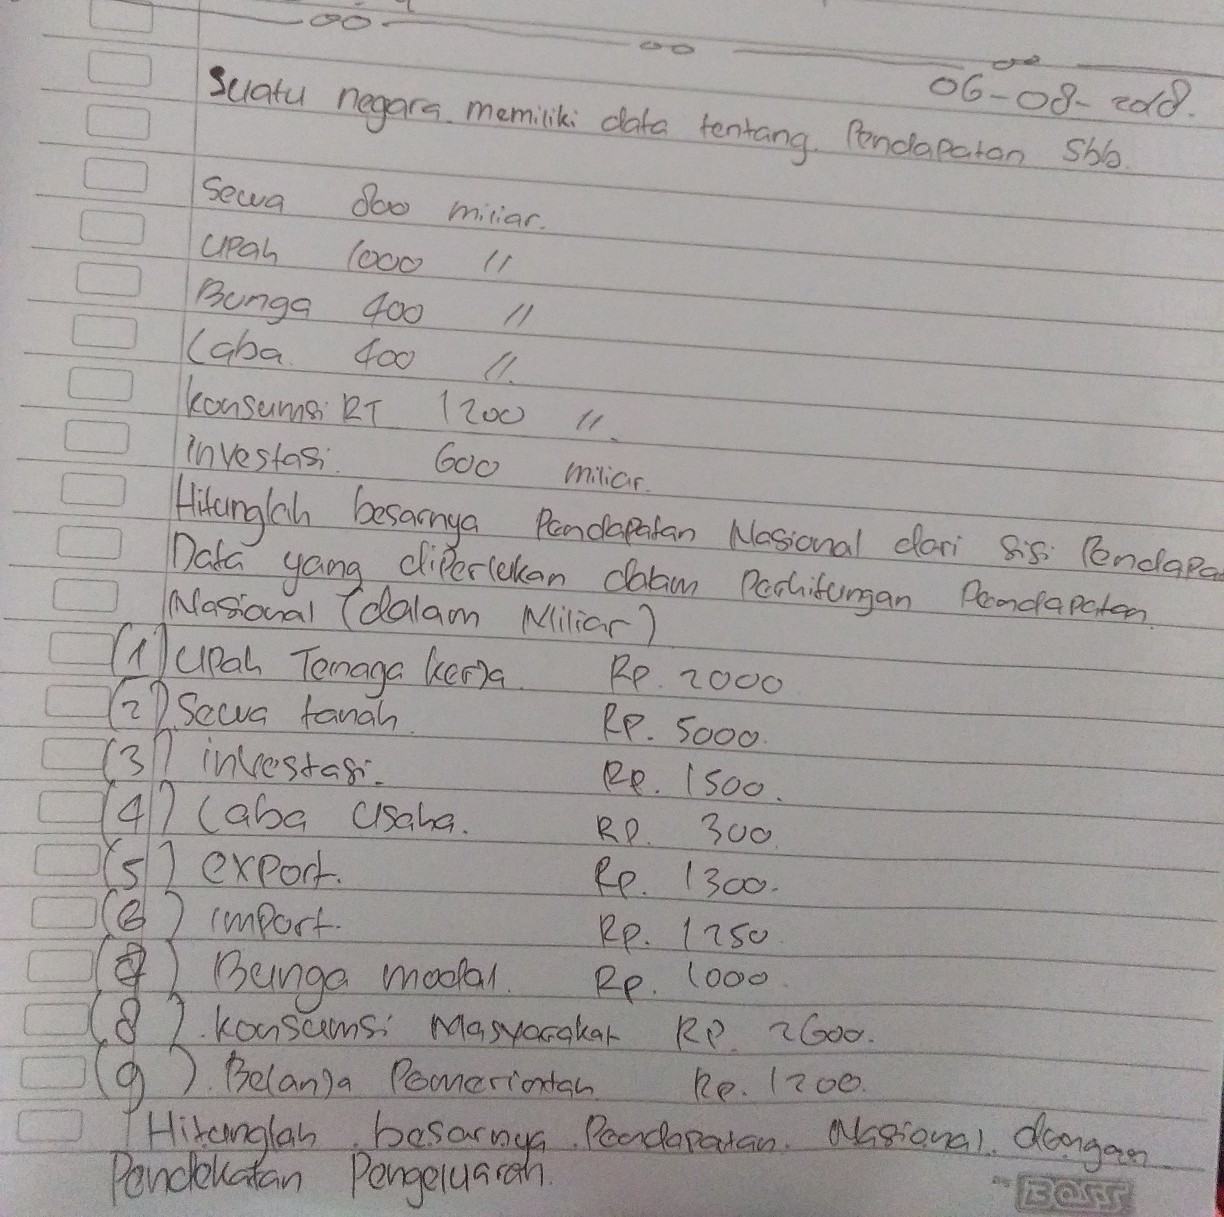 06-08-2018.
Suatu negara memiliki data tentang Pendapatan sbb.
Sewa 800 miliar.
Upah 1000 "
Bunga 400 "
Laba 400 ".
Konsumsi RT 1200 ".
investasi 600 miliar.
Hitunglah besarnya Pendapatan Nasional dari sisi Pendapa
Data yang diperlukan dalam Perhitungan Pendapatan
Nasional (dalam Miliar)
(1) Upah Tenaga kerja Rp. 2000
(2) Sewa tanah Rp. 5000.
(3) investasi Rp. 1500.
(4) Laba Usaha. Rp. 300.
(5) export. Rp. 1300.
(6) import. Rp. 1250
(7) Bunga modal. Rp. 1000
(8). Konsumsi Masyarakat Rp. 2600.
(9). Belanja Pemerintah Rp. 1200.
Hitunglah besarnya Pendapatan Nasional dengan
Pendekatan Pengeluaran.
BOSS